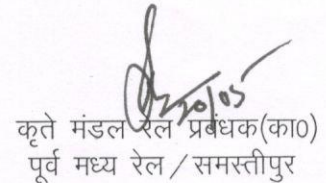 20/05
कृते मंडल रेल प्रबंधक(का0)
पूर्व मध्य रेल / समस्तीपुर